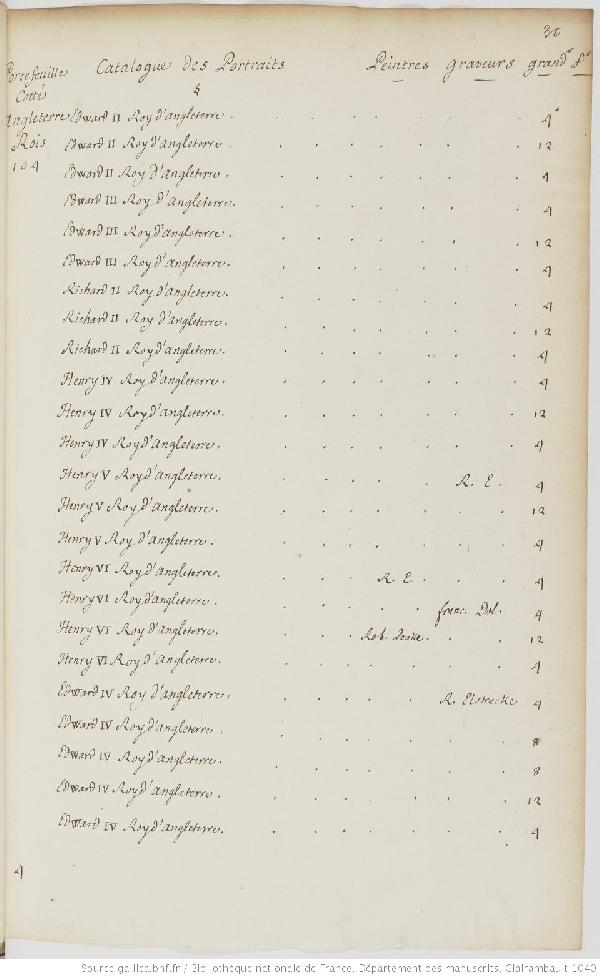 30
Portefeuille Catalogue des Portraits Peintres Graveurs grandr
Cotté §
Angleterre Edward II Roy d'angleterre. 4°
Rois Edward II Roy d'angleterre. 12
104 Edward II Roy d'angleterre. 4
Edward III Roy d'angleterre. 4
Edward III Roy d'angleterre. 12
Edward III Roy d'angleterre. 4
Richard II Roy d'angleterre. 4
Richard II Roy d'angleterre. 12
Richard II Roy d'angleterre. 4
Henry IV Roy d'angleterre. 4
Henry IV Roy d'angleterre. 12
Henry IV Roy d'angleterre. 4
Henry V Roy d'angleterre. R. E. 4
Henry V Roy d'angleterre. 12
Henry V Roy d'angleterre. 4
Henry VI Roy d'angleterre. R. E. 4
Henry VI Roy d'angleterre. franc. Del. 4
Henry VI Roy d'angleterre. Rob. 12
Henry VI Roy d'angleterre. 4
Edward IV Roy d'angleterre. R. Elstrecke 4
Edward IV Roy d'angleterre. 8
Edward IV Roy d'angleterre. 8
Edward IV Roy d'angleterre. 12
Edward IV Roy d'angleterre. 4
4
Source gallica.bnf.fr / Bibliothèque nationale de France. Département des manuscrits. Clairambault 1040